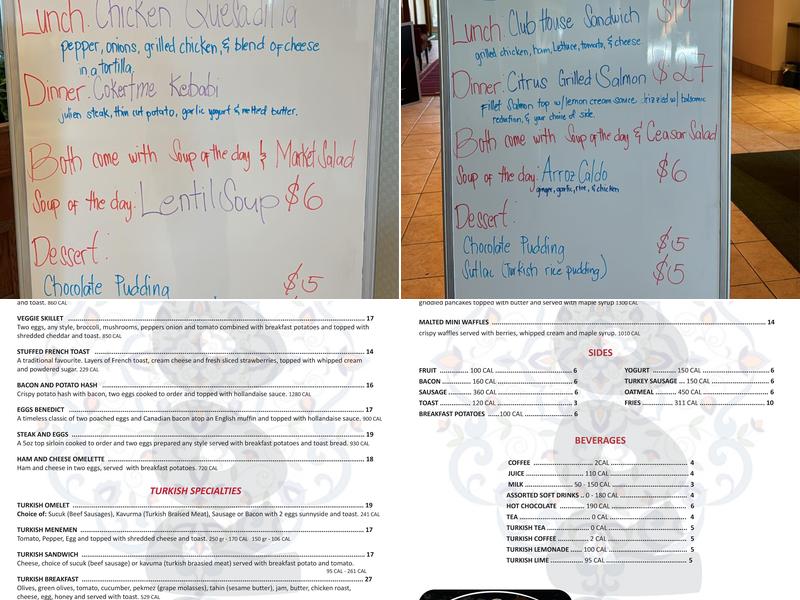 Lunch: Chicken Quesadilla
pepper, onions, grilled chicken, & blend of cheese
in a tortilla.
Dinner: Cokertme Kebabi
julien steak, thin cut potato, garlic yogurt & melted butter.
Both come with Soup of the day & Market Salad
Soup of the day: Lentil Soup $6
Dessert:
Chocolate Pudding $5
Lunch: Club House Sandwich $19
grilled chicken, ham, Lettuce, tomato, & cheese
Dinner: Citrus Grilled Salmon $27
Fillet Salmon top w/ lemon cream sauce drizzled w/ balsamic
reduction, & your choice of side.
Both come with Soup of the day & Ceasar Salad
Soup of the day: Arroz Caldo $6
ginger, garlic, rice, & chicken
Dessert:
Chocolate Pudding $5
Sutlac (Turkish rice pudding) $5
and toast. 860 CAL
VEGGIE SKILLET 17
Two eggs, any style, broccoli, mushrooms, peppers onion and tomato combined with breakfast potatoes and topped with
shredded cheddar and toast. 850 CAL
STUFFED FRENCH TOAST 14
A traditional favourite. Layers of French toast, cream cheese and fresh sliced strawberries, topped with whipped cream
and powdered sugar. 229 CAL
BACON AND POTATO HASH 16
Crispy potato hash with bacon, two eggs cooked to order and topped with hollandaise sauce. 1280 CAL
EGGS BENEDICT 17
A timeless classic of two poached eggs and Canadian bacon atop an English muffin and topped with hollandaise sauce. 900 CAL
STEAK AND EGGS 19
A 5oz top sirloin cooked to order and two eggs prepared any style served with breakfast potatoes and toast bread. 930 CAL
HAM AND CHEESE OMELETTE 18
Ham and cheese in two eggs, served with breakfast potatoes. 720 CAL
TURKISH SPECIALTIES
TURKISH OMELET 19
Choice of: Sucuk (Beef Sausages), Kavurma (Turkish Braised Meat), Sausage or Bacon with 2 eggs sunnyside and toast. 241 CAL
TURKISH MENEMEN 17
Tomato, Pepper, Egg and topped with shredded cheese and toast. 250 gr - 170 CAL 150 gr - 106 CAL
TURKISH SANDWICH 17
Cheese, choice of sucuk (beef sausage) or kavuma (turkish braasied meat) served with breakfast potato and tomato.
95 CAL - 261 CAL
TURKISH BREAKFAST 27
Olives, green olives, tomato, cucumber, pekmez (grape molasses), tahin (sesame butter), jam, butter, chicken roast,
cheese, egg, honey and served with toast. 529 CAL
griddled pancakes topped with butter and served with maple syrup 1300 CAL
MALTED MINI WAFFLES 14
crispy waffles served with berries, whipped cream and maple syrup. 1010 CAL
SIDES
FRUIT 100 CAL 6
BACON 160 CAL 6
SAUSAGE 360 CAL 6
TOAST 120 CAL 3
BREAKFAST POTATOES 100 CAL 6
YOGURT 150 CAL 6
TURKEY SAUSAGE 150 CAL 6
OATMEAL 450 CAL 6
FRIES 311 CAL 10
BEVERAGES
COFFEE 2CAL 4
JUICE 110 CAL 4
MILK 50 - 150 CAL 3
ASSORTED SOFT DRINKS 0 - 180 CAL 4
HOT CHOCOLATE 190 CAL 6
TEA 0 CAL 4
TURKISH TEA 0 CAL 5
TURKISH COFFEE 2 CAL 5
TURKISH LEMONADE 100 CAL 5
TURKISH LIME 95 CAL 5